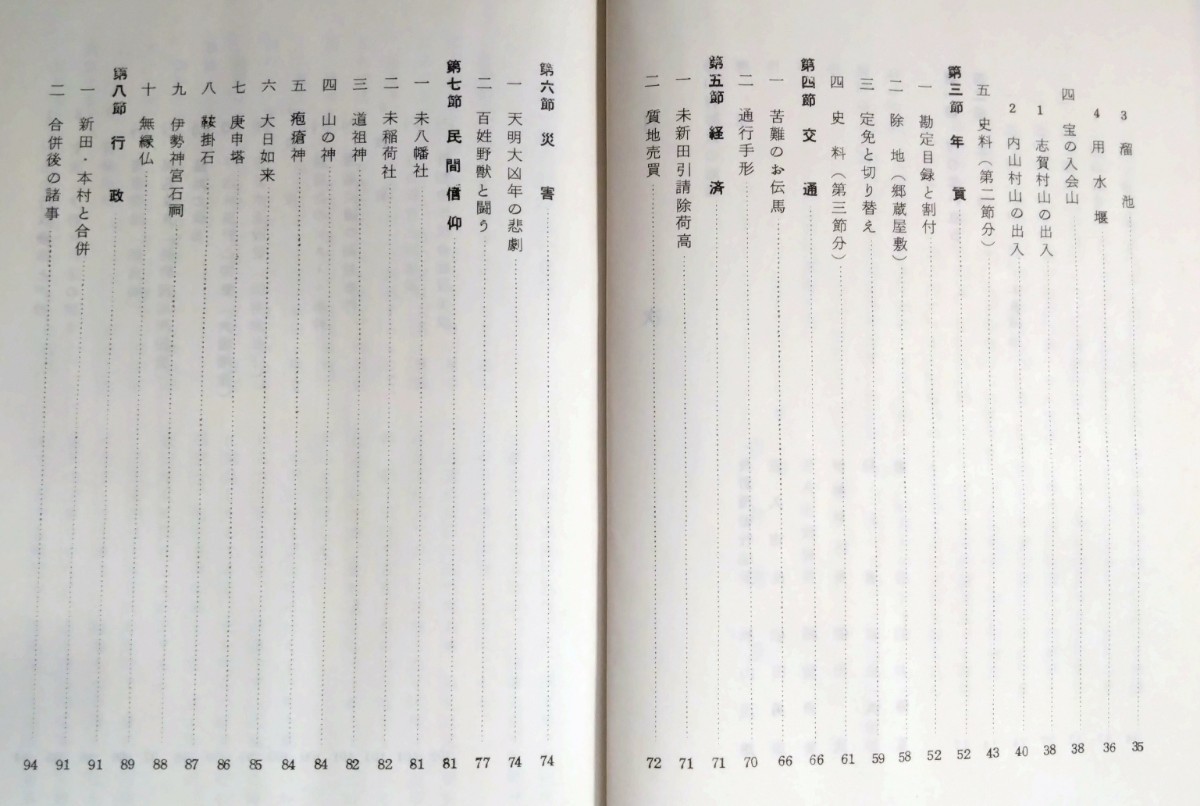 3 溜池……35
4 用水堰……36
四 宝の入会山……38
1 志賀村山の出入……38
2 内山村山の出入……40
五 史料(第二節分)……43
第三節 年貢……52
一 勘定目録と割付……52
二 除地(郷蔵屋敷)……58
三 定免と切り替え……59
四 史料(第三節分)……61
第四節 交通……66
一 苦難のお伝馬……66
二 通行手形……70
第五節 経済……71
一 未新田引請除荷高……71
二 質地売買……72
第六節 災害……74
一 天明大凶年の悲劇……74
二 百姓野獣と闘う……77
第七節 民間信仰……81
一 未八幡社……81
二 未稲荷社……82
三 道祖神……82
四 山の神……84
五 疱瘡神……84
六 大日如来……85
七 庚申塔……86
八 鞍掛石……87
九 伊勢神宮石祠……87
十 無縁仏……88
第八節 行政……89
一 新田・本村と合併……91
二 合併後の諸事……94